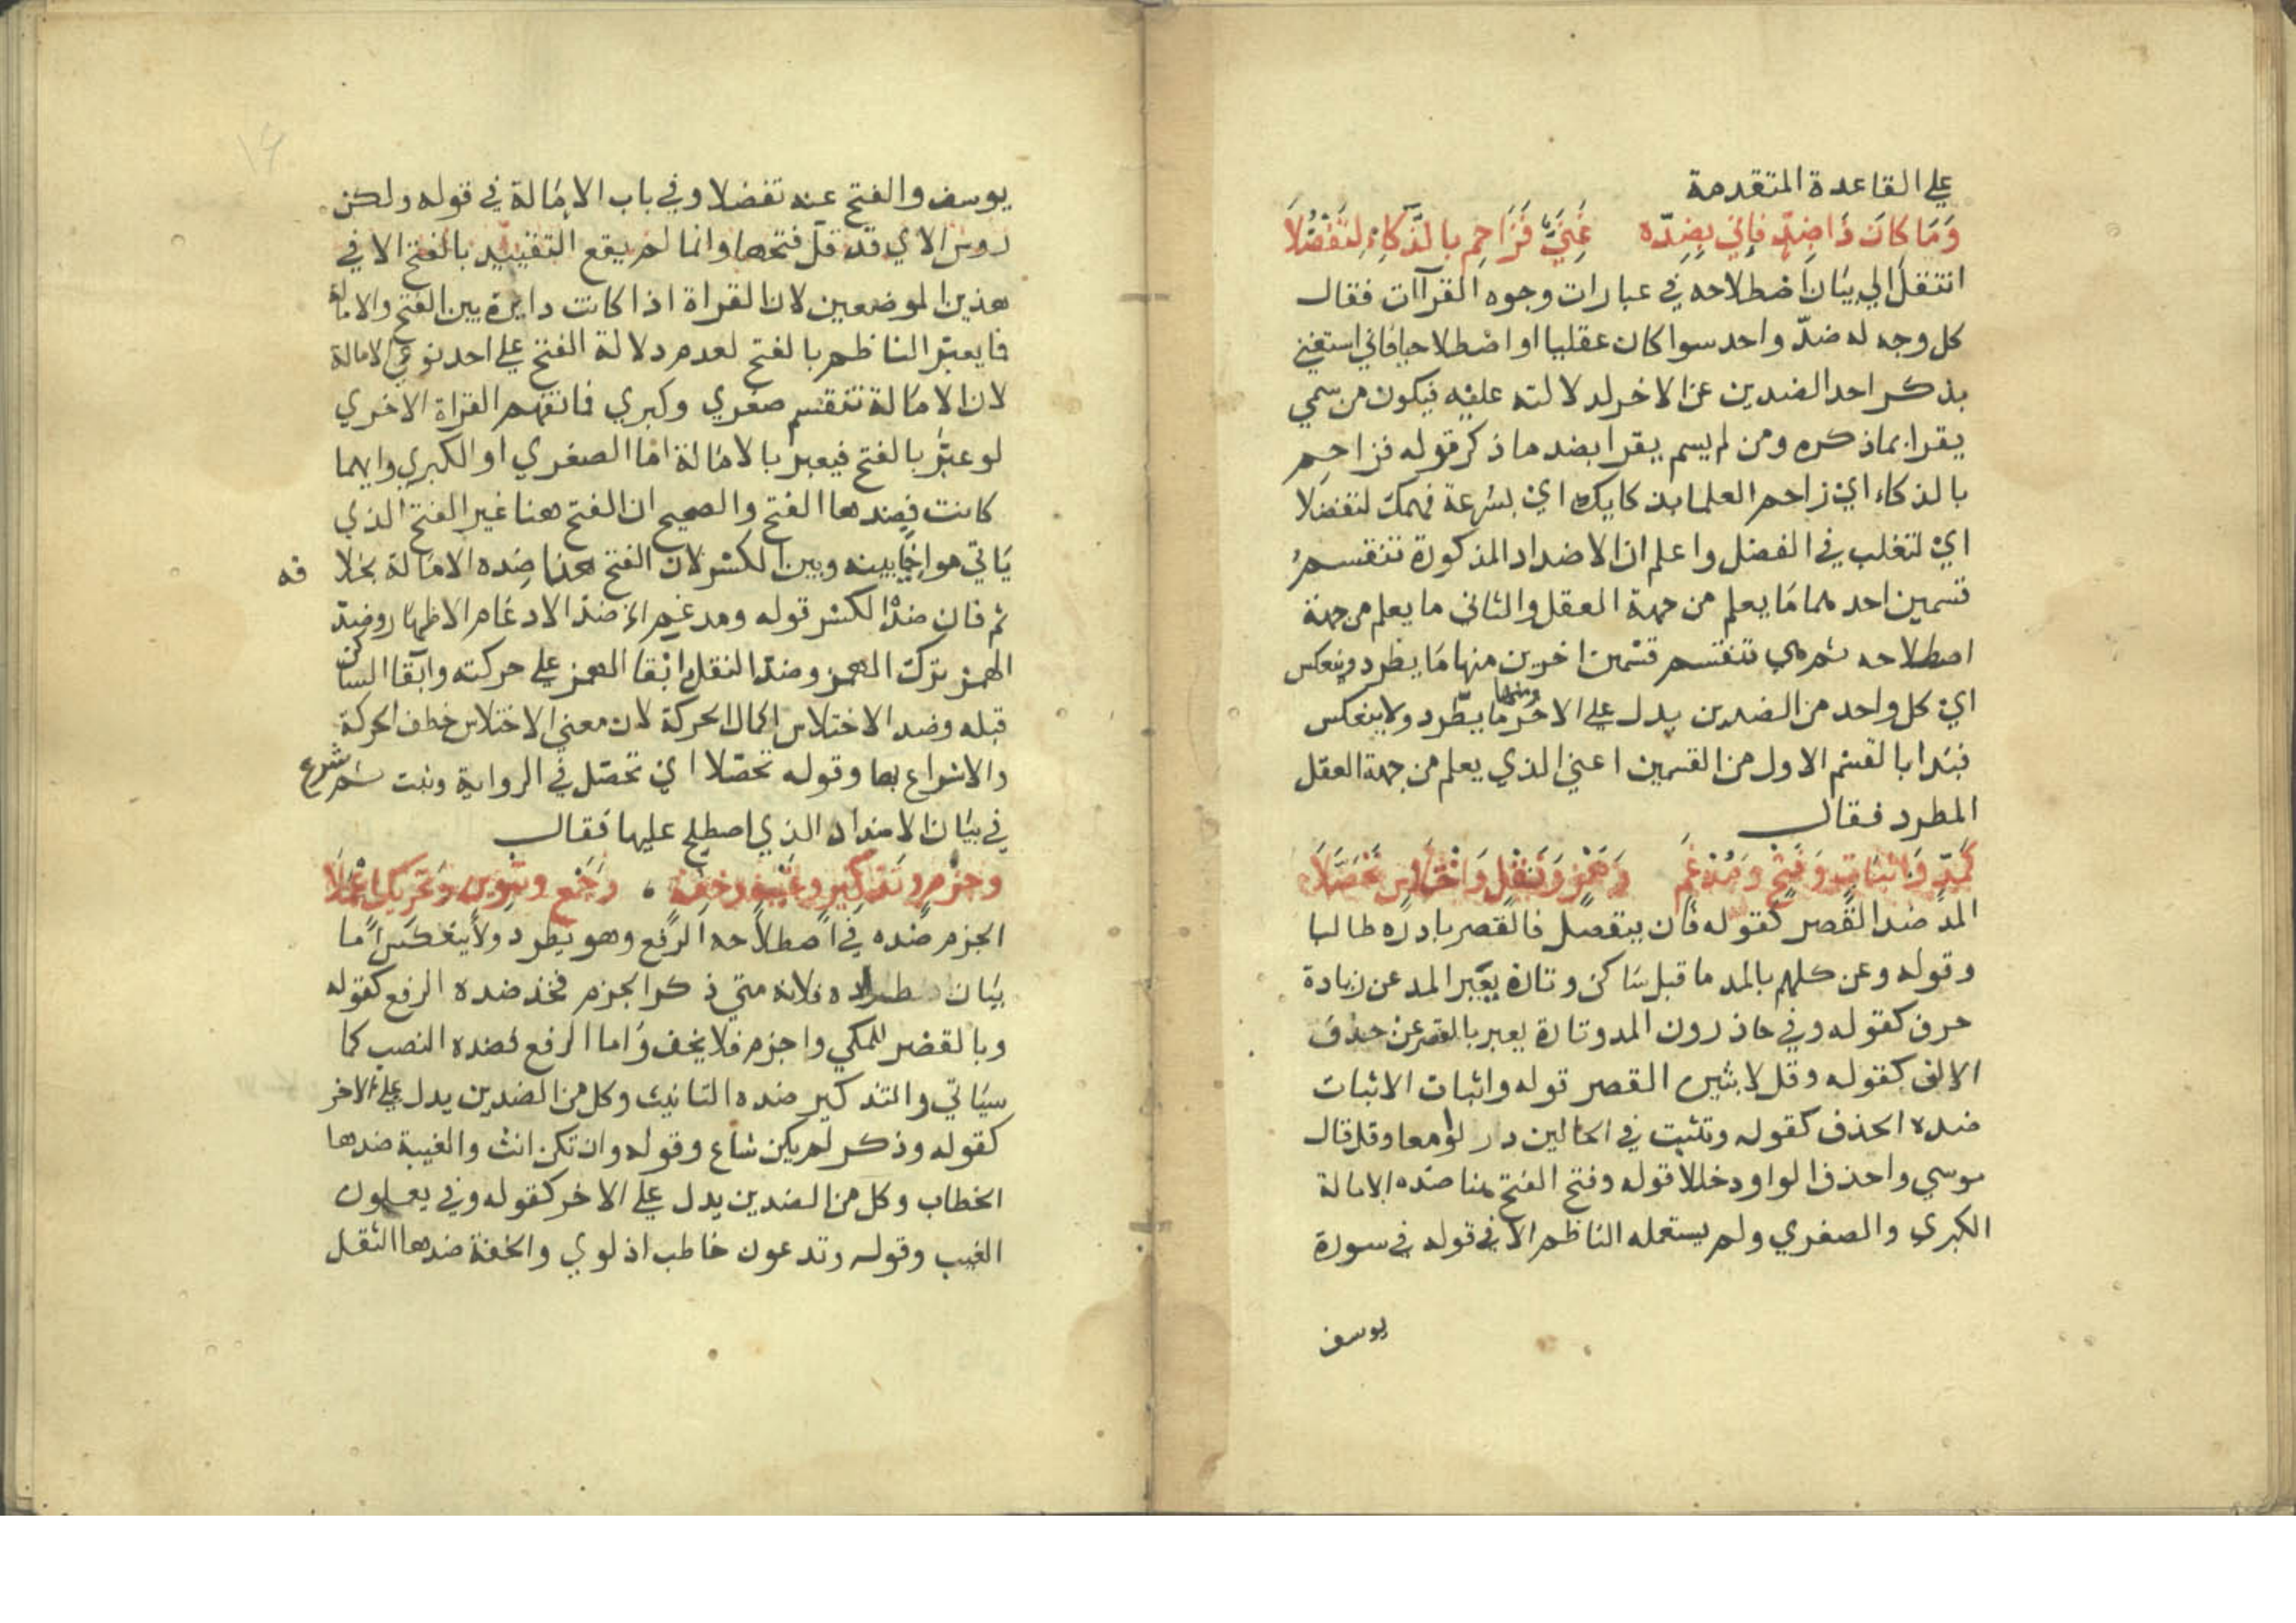 علي القاعدة المتقدمة
وَمَا كَانَ ذَا ضِدٍّ فَإِنِّي بِضِدِّه غَنِيٌّ فَزَاحِم بِالذَّكَاءِ لِتَفْضُلَا
انتقل الي بيان اصطلاحه في عبارات وجوه القراآت فقال
كل وجه له ضدّ واحد سوا كان عقليا او اصطلاحيا فاني استغني
بذكر احد الضدين عن الاخر لدلالته عليه فيكون من سمي
يقرا بما ذكره ومن لم يسم يقرا بضد ما ذكر قوله فزاحم
بالذكاء اي زاحم العلما بذكايك اي بسرعة فهمك لتفضلا
اي لتغلب في الفضل واعلم ان الاضداد المذكورة تنقسم
قسمين احدهما ما يعلم من جهة العقل والثاني ما يعلم من جهة
اصطلاحه ثم هي تنقسم قسمين اخرين منها ما يطرد وينعكس
اي كل واحد من الضدين يدل علي الاخر ومنها ما يطّرد ولا ينعكس
فبدا بالقسم الاول من القسمين اعني الذي يعلم من جهة العقل
المطرد فقال
كَمَدٍّ وَإِثْبَاتٍ وَفَتْحٍ وَمُدْغَمٍ وَهَمْزٍ وَنَقْلٍ وَاخْتِلَاسٍ تَحَصَّلَا
المد ضد القصر كقوله فان ينفصل فالقصر بادره طالبا
وقوله وعن كلهم بالمد ما قبل ساكن وتارة يعبر المد عن زيادة
حرف كقوله وفي حاذرون المد وتارة يعبر بالقصر عن حذف
الالف كقوله وقل لابثين القصر قوله واثبات الاثبات
ضده الحذف كقوله وتثبت في الحالين در لوامعا وقل قال
موسي واحذف الواو دخللا قوله وفتح الفتح هنا ضده الامالة
الكبري والصغري ولم يستعمله الناظم الا في قوله في سورة
يوسف
يوسف والفتح عنه تفضلا وفي باب الامالة في قوله ولكن
روس الاي قد قل فتحها وانما لم يقع التقييد بالفتح الا في
هذين الموضعين لان القراة اذا كانت دايرة بين الفتح والامالة
فا يعبر الناظم بالفتح لعدم دلالة الفتح علي احد نوعي الامالة
لان الامالة تنقسم صغري وكبري فا تفهم القراة الاخري
لو عبّر بالفتح فيعبر بالامالة اما الصغري او الكبري وايهما
كانت فضدها الفتح والصحيح ان الفتح هنا غير الفتح الذي
ياتي مواخيا بينه وبين الكسر لان الفتح هنا ضده الامالة بخلافه
ثم فان ضدّ الكسر قوله ومدغم اي ضد الادغام الاظهار وضد
الهمز ترك الهمز وضد النقل ابقا الهمز علي حركته وابقا الساكن
قبله وضد الاختلاس اكمال الحركة لان معني الاختلاس خطف الحركة
والاسراع بها وقوله تحصّلا اي تحصّل في الرواية وثبت ثم شرع
في بيان الاضداد الذي اصطلح عليها فقال
وجزمٍ وتذكيرٍ وغيبٍ وخفةٍ وجمعٍ وتنوينٍ وتحريكٍ اعملا
الجزم ضده في اصطلاحه الرفع وهو يطرد ولا ينعكس اما
بيان اطراده فلانه متي ذكر الجزم فخذ ضده الرفع كقوله
وبالقصر للمكي واجزم فلا يخف واما الرفع فضده النصب كما
سياتي والتذكير ضده التانيث وكل من الضدين يدل علي الاخر
كقوله وذكر لم يكن شاع وقوله وان تكن انث والغيبة ضدها
الخطاب وكل من الضدين يدل علي الاخر كقوله وفي يعملون
الغيب وقوله وتدعون خاطب اذ لوي والخفة ضدها الثقل